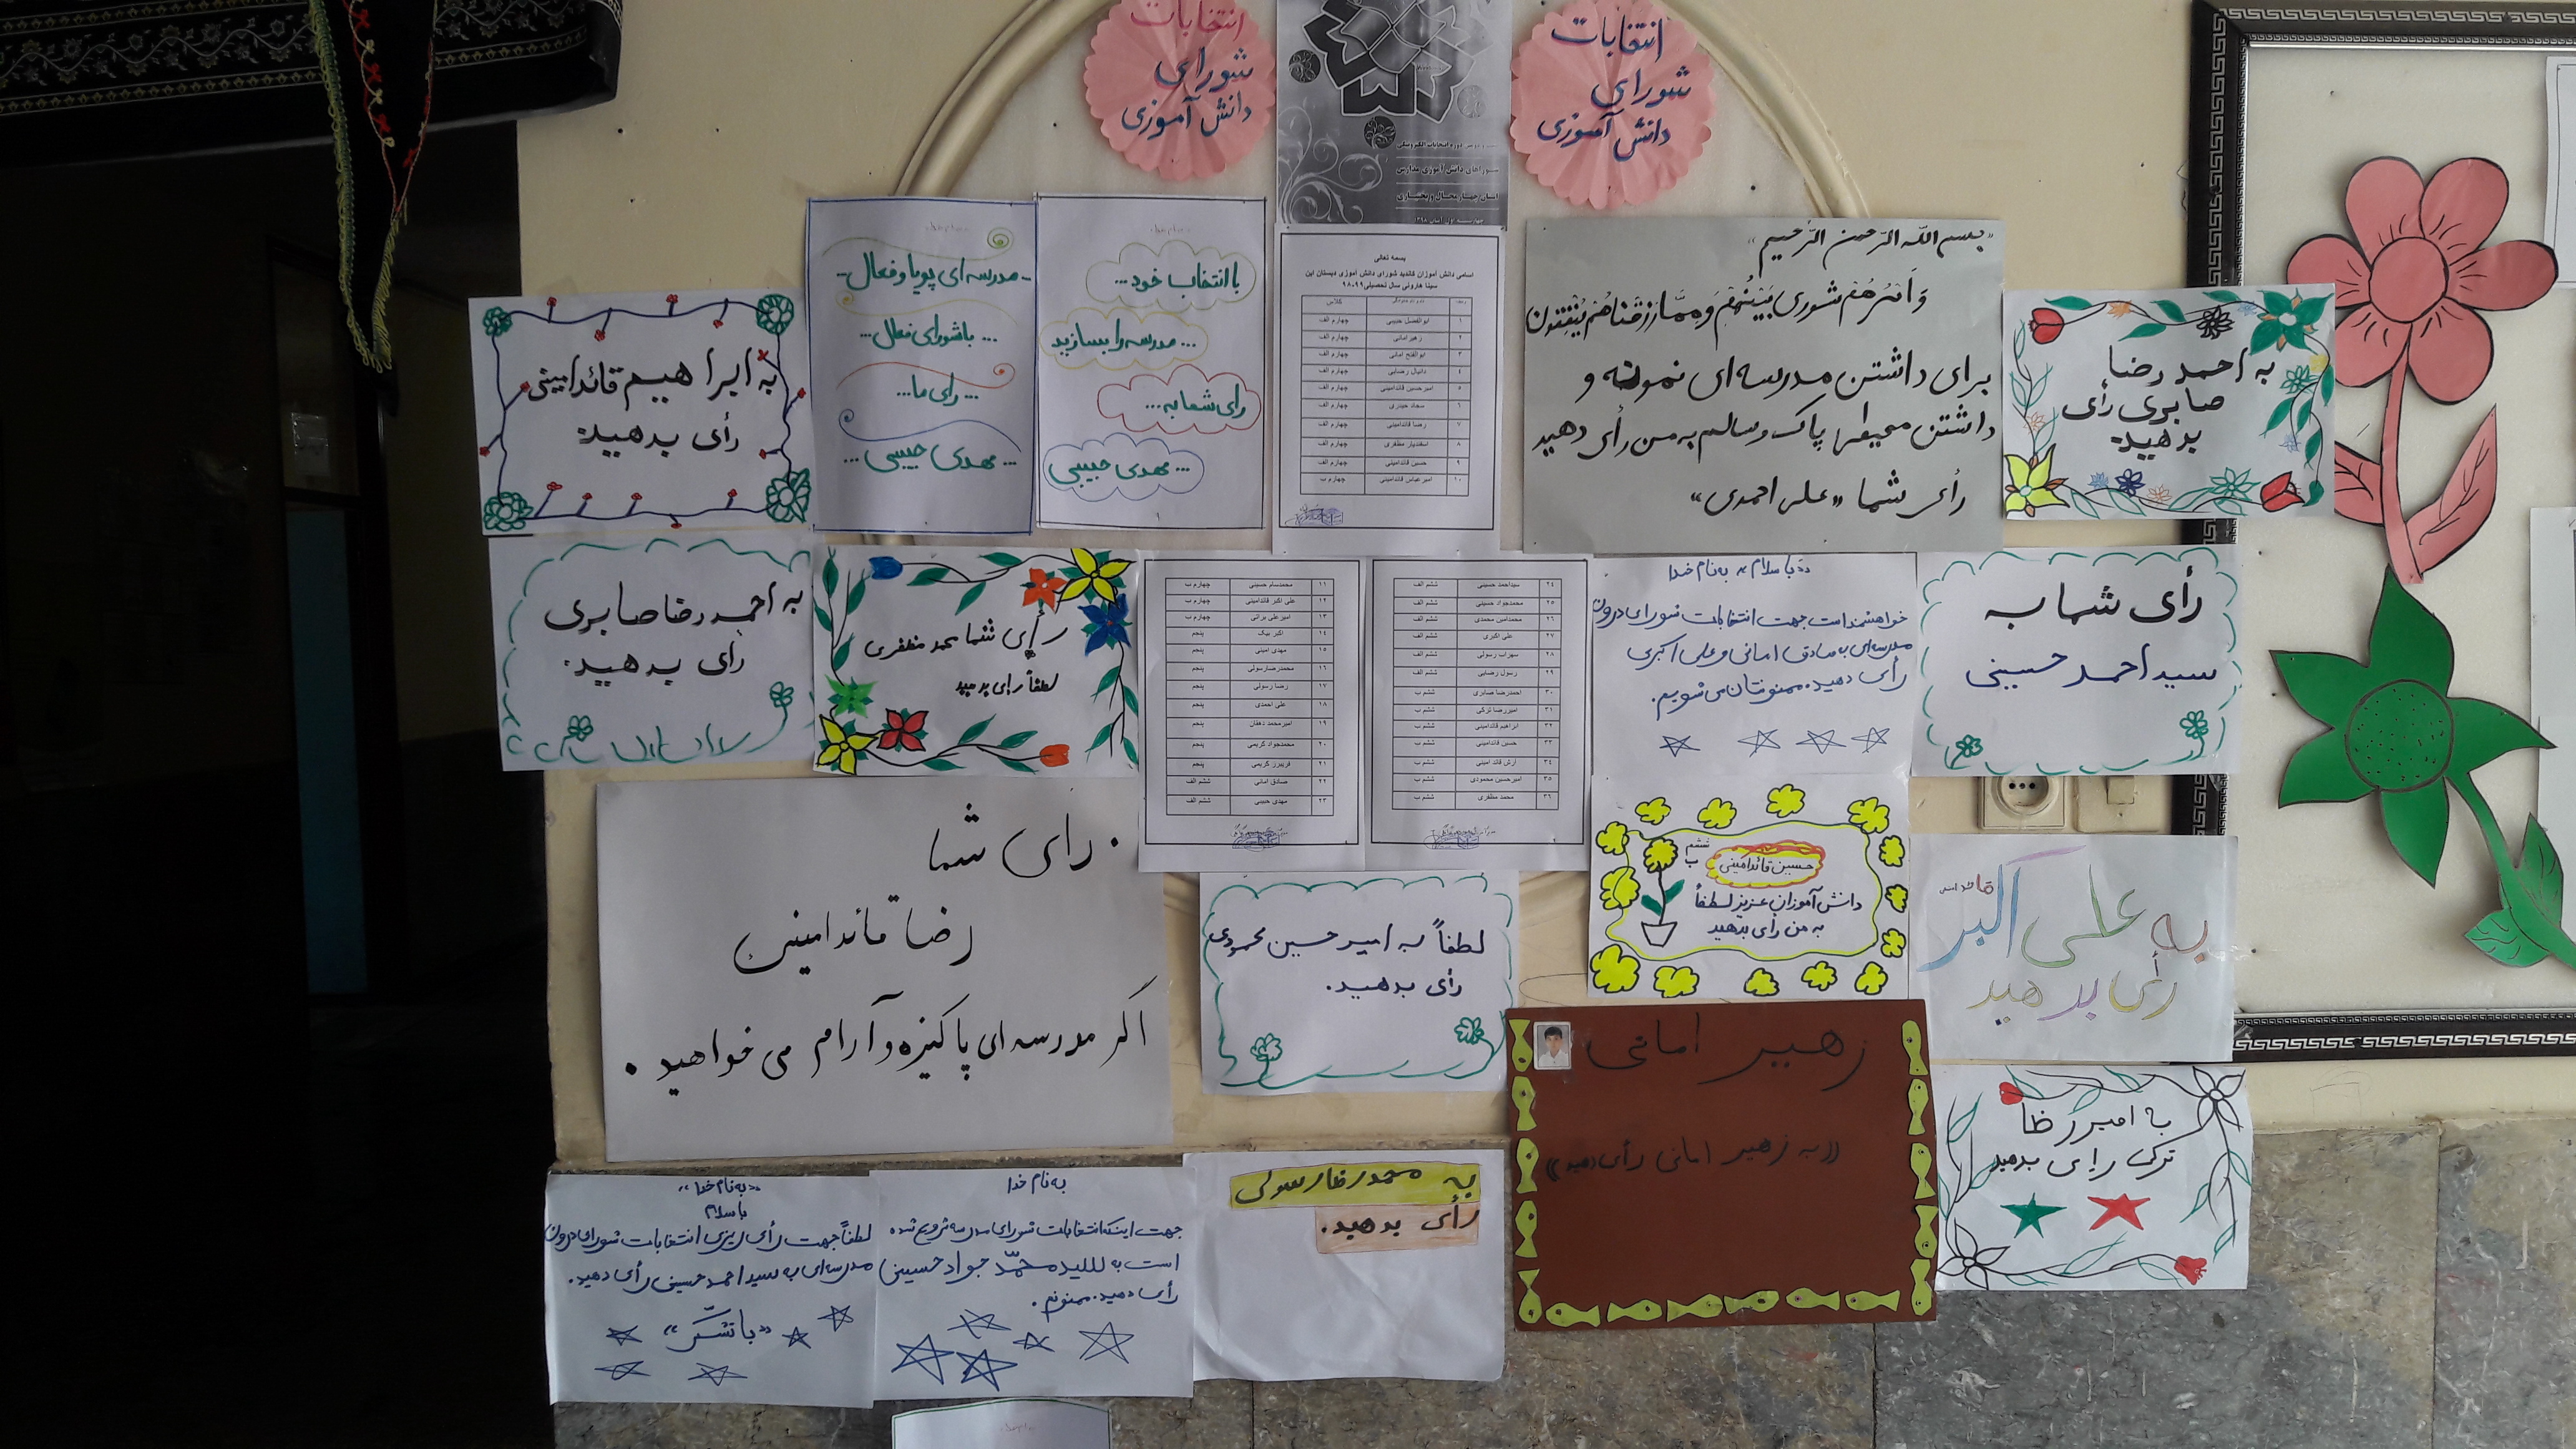 انتخابات
شورای
دانش آموزی
انتخابات
شورای
دانش آموزی
شوراهای دانش آموزی مدارس
استان چهارمحال و بختیاری
به ابراهیم قائدامینی
رأی بدهید.
... مدرسه ای پویا و فعال...
... با شورای فعال...
... رای ما...
... مهدی حبیبی...
با انتخاب خود...
... مدرسه را بسازید
رای شما به...
... مهدی حبیبی
بسمه تعالی
اسامی دانش آموزان کاندید شورای دانش آموزی دبستان ابن
سینا هارونی سال تحصیلی ۹۹-۹۸
۱ ابوالفضل حبیبی چهارم الف
۲ زهیر امانی چهارم الف
۳ ابوالفتح امانی چهارم الف
۴ دانیال رضایی چهارم الف
۵ امیرحسین قائدامینی چهارم الف
۶ سجاد حیدری چهارم الف
۷ رضا قائدامینی چهارم الف
۸ اسفندیار مظفری چهارم الف
۹ حسین قائدامینی چهارم الف
۱۰ امیرعباس قائدامینی چهارم ب
«بسم الله الرّحمن الرّحیم»
وَ اَمْرُهُمْ شوری بَیْنَهُمْ وَ مِمَّا رَزَقْناهُمْ یُنْفِقُونَ
برای داشتن مدرسه ای نمونه و
داشتن محیط پاک و سالم به من رأی دهید
رأی شما «علی احمدی»
به احمد رضا
صابری رأی
بدهید.
به احمد رضا صابری
رأی بدهید.
رأی شما محمد مظفری
لطفاً رای بدهید
۱۱ محمدسام حسینی چهارم ب
۱۲ علی اکبر قائدامینی چهارم ب
۱۳ امیرعلی براتی چهارم ب
۱۴ اکبر بیک پنجم
۱۵ مهدی امینی پنجم
۱۶ محمدرضا رسولی پنجم
۱۷ رضا رسولی پنجم
۱۸ علی احمدی پنجم
۱۹ امیرمحمد دهقان پنجم
۲۰ محمدجواد کریمی پنجم
۲۱ فریبرز کریمی پنجم
۲۲ صادق امانی ششم الف
۲۳ مهدی حبیبی ششم الف
۲۴ سیداحمد حسینی ششم الف
۲۵ محمدجواد حسینی ششم الف
۲۶ محمدامین محمدی ششم الف
۲۷ علی اکبری ششم الف
۲۸ سهراب رسولی ششم الف
۲۹ رسول رضایی ششم الف
۳۰ احمدرضا صابری ششم ب
۳۱ امیررضا ترکی ششم ب
۳۲ ابراهیم قائدامینی ششم ب
۳۳ حسین قائدامینی ششم ب
۳۴ آرش قائد امینی ششم ب
۳۵ امیرحسین محمودی ششم ب
۳۶ محمد مظفری ششم ب
«با سلام» به نام خدا
خواهشمند است جهت انتخابات شورای درون
مدرسه ای به صادق امانی و علی اکبری
رأی دهید. ممنونتان می شویم.
رأی شما به
سید احمد حسینی
. رای شما
رضا قائدامینی
اگر مدرسه ای پاکیزه و آرام می خواهید .
لطفاً به امیر حسین محمودی
رأی بدهید.
ششم
ب
حسین قائدامینی
دانش آموزان عزیز لطفاً
به من رای بدهید
قائد امینی
به علی اکبر
رأی بدهید
زهیر امانی
«به زهیر امانی رأی دهید»
با امیررظا
ترکی رای بدهید
«به نام خدا»
با سلام
لطفاً جهت رأی ریزی انتخابات شورای درون
مدرسه ای به سید احمد حسینی رأی دهید.
«با تشکّر»
به نام خدا
جهت اینکه انتخابات شورای مدرسه شروع شده
است به سید محمّد جواد حسینی
رأی دهید. ممنونم.
به محمدرظا رسولی
رأی بدهید.